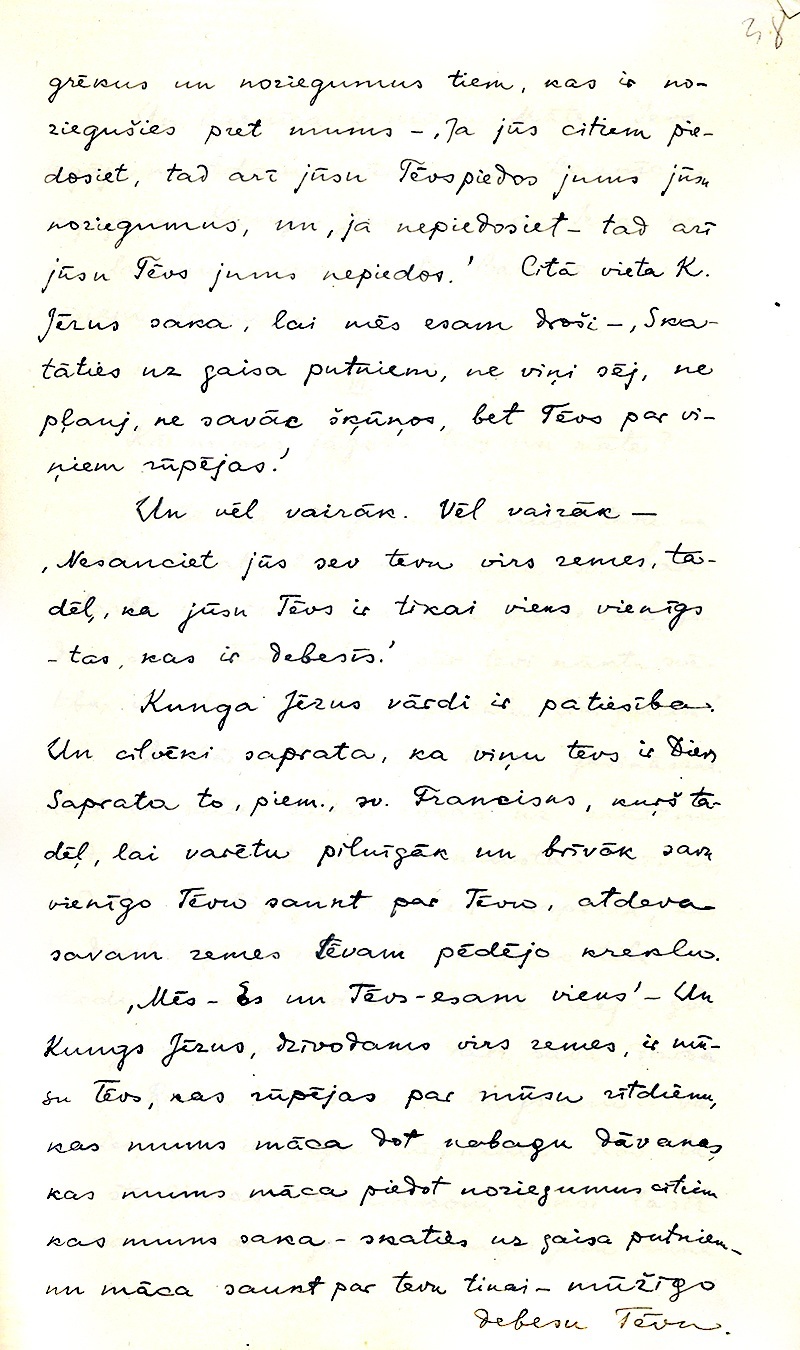 38
grēkus un noziegumus tiem, kas ir no-
ziegušies pret mums –, Ja jūs citiem pie-
dosiet, tad arī jūsu Tēvs piedos jums jūsu
noziegumus, un, ja nepiedosiet – tad arī
jūsu Tēvs jums nepiedos.' Citā vieta K.
Jēzus saka, lai mēs esam droši –, Ska-
tāties uz gaisa putniem, ne viņi sēj, ne
pļauj, ne savāc šķūņos, bet Tēvs par vi-
ņiem rūpējas.'
Un vēl vairāk. Vēl vairāk –
, Nesauciet jūs sev tēvu virs zemes, ta-
dēļ, ka jūsu Tēvs ir tikai viens vienīgs
– tas, kas ir debesīs.'
Kunga Jēzus vārdi ir patiesība.
Un cilvēki saprata, ka viņu tēvs ir Dievs
Saprata to, piem., sv. Franciskus, kuŗš ta-
dēļ, lai varētu pilnīgāk un brīvāk savu
vienīgo Tēvu saukt par Tēvu, atdeva
savam zemes tēvam pēdējo kreklu.
, Mēs – Es un Tēvs – esam viens' – Un
Kungs Jēzus, dzīvodams virs zemes, ir mū-
su Tēvs, kas rūpējas par mūsu rītdienu,
kas mums māca dot nabagu dāvanas,
kas mums māca piedot noziegumus citiem
kas mums saka – skaties uz gaisa putniem –
un māca saukt par tēvu tikai – mūžīgo
debesu Tēvu.